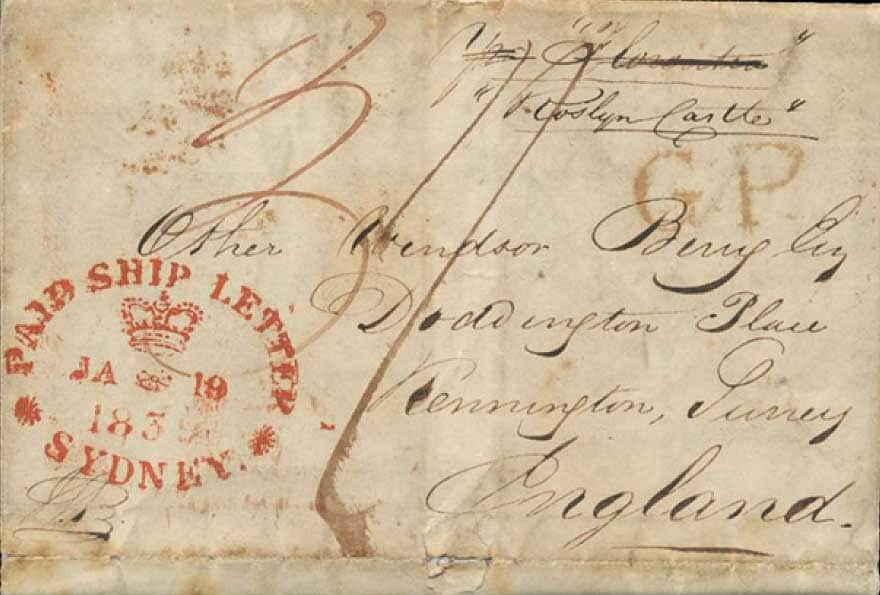 "Roslyn Castle"
G.P.
Other Windsor Berry Esq
Doddington Place
Kennington, Surrey
England.
PAID SHIP LETTER
JA 19
183
SYDNEY.
3